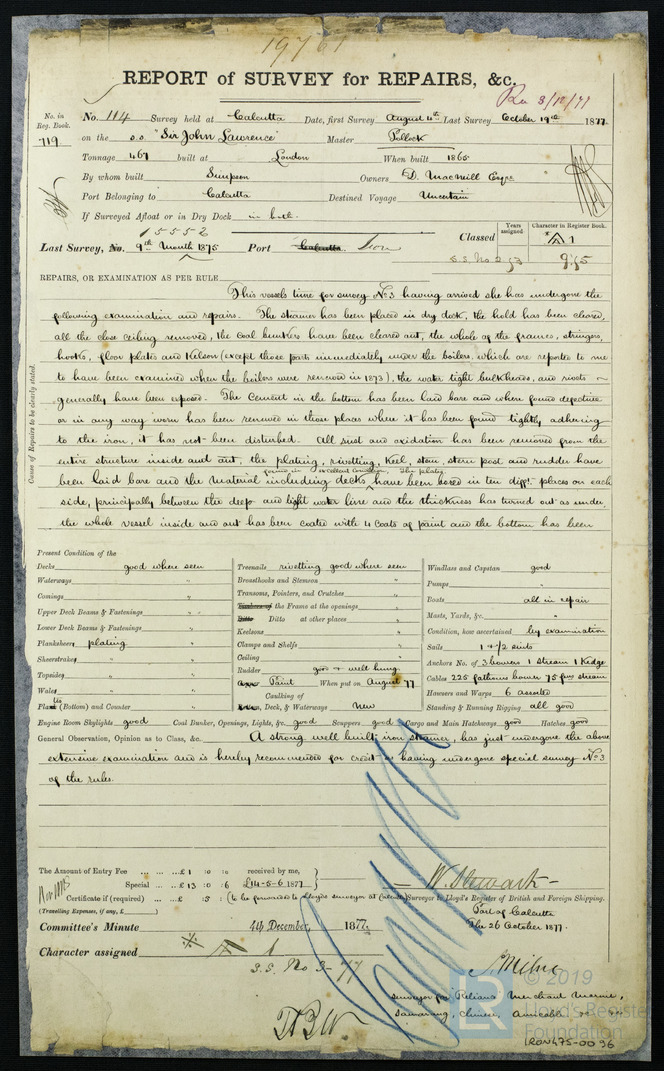 19761
REPORT of SURVEY for REPAIRS, &c.
Rec 3/12/77
No. in Reg. Book. 719
No. 114 Survey held at Calcutta Date, first Survey August 4th Last Survey October 19th 1877
on the s.s. "Sir John Lawrence" Master Pollock
Tonnage 467 built at London When built 1865
By whom built Simpson Owners D. Macneill Esqre
Port Belonging to Calcutta Destined Voyage Uncertain
If Surveyed Afloat or in Dry Dock in both
15552
Last Survey, No. 9th Month 1875 Port Calcutta. Iron
Classed Years assigned Character in Register Book.
A 1
S.S. No 2 73 9,75
REPAIRS, OR EXAMINATION AS PER RULE
Cause of Repairs to be clearly stated.
This vessels time for survey No 3 having arrived she has undergone the
following examination and repairs. The steamer has been placed in dry dock, the hold has been cleared,
all the close ceiling removed, the coal bunkers have been cleared out, the whole of the frames, stringers,
hooks, floor plates and Kelson (except those parts immediately under the boilers, which are reported to me
to have been examined when the boilers were renewed in 1873), the water tight bulkheads, and rivets
generally have been exposed. The Cement in the bottom has been laid bare and where found defective
or in any way worn has been renewed in those places where it has been found tightly adhering
to the iron, it has not been disturbed. All rust and oxidation has been removed from the
entire structure inside and out, the plating, rivetting, Keel, stem, stern post and rudder have
found in excellent condition. The plating
been laid bare and the material including decks have been bored in ten difft. places on each
side, principally between the deep and light water line and the thickness has turned out as under,
the whole vessel inside and out has been coated with 4 coats of paint and the bottom has been
Present Condition of the
Decks good where seen
Waterways "
Comings "
Upper Deck Beams & Fastenings " "
Lower Deck Beams & Fastenings "
Planksheer plating
Sheerstrakes "
Topsides "
Wales "
Plank (Bottom) and Counter "
Treenails rivetting good where seen
Breasthooks and Stemson "
Transoms, Pointers, and Crutches "
Timbers of the Frame at the openings "
Ditto Ditto at other places "
Keelsons "
Clamps and Shelfs "
Ceiling "
Rudder good & well hung
Paint When put on August 77
Caulking of
Deck, & Waterways New
Windlass and Capstan good
Pumps "
Boats all in repair
Masts, Yards, &c. "
Condition, how ascertained by examination
Sails 1 & 1/2 suits
Anchors No. of 3 bowers 1 stream 1 Kedge
Cables 225 fathoms bower 75 fms stream
Hawsers and Warps 6 assorted
Standing & Running Rigging all good
Engine Room Skylights good Coal Bunker, Openings, Lights, &c. good Scuppers good Cargo and Main Hatchways good Hatches good
General Observation, Opinion as to Class, &c. A strong well built iron steamer, has just undergone the above
extensive examination and is hereby recommended for credit as having undergone special survey No 3
of the rules.
The Amount of Entry Fee ... £1 : 0 : 0 received by me,
Special ... £13 : 0 : 6 £14-5-6 1877
Certificate if (required) .. £ : 5 : (to be forwarded to Lloyds surveyor at Calcutta)
(Travelling Expenses, if any, £ )
W. Stewart
Surveyor to Lloyd's Register of British and Foreign Shipping.
Port of Calcutta
The 26 October 1877.
Committee's Minute 4th December, 1877.
Character assigned A 1
S.S. No 3-77
J. Milne
surveyor for Reliance Merchant Marine,
Samarang, Chinese,
© 2019
LR
Lloyd's Register
Foundation
RON475-0096